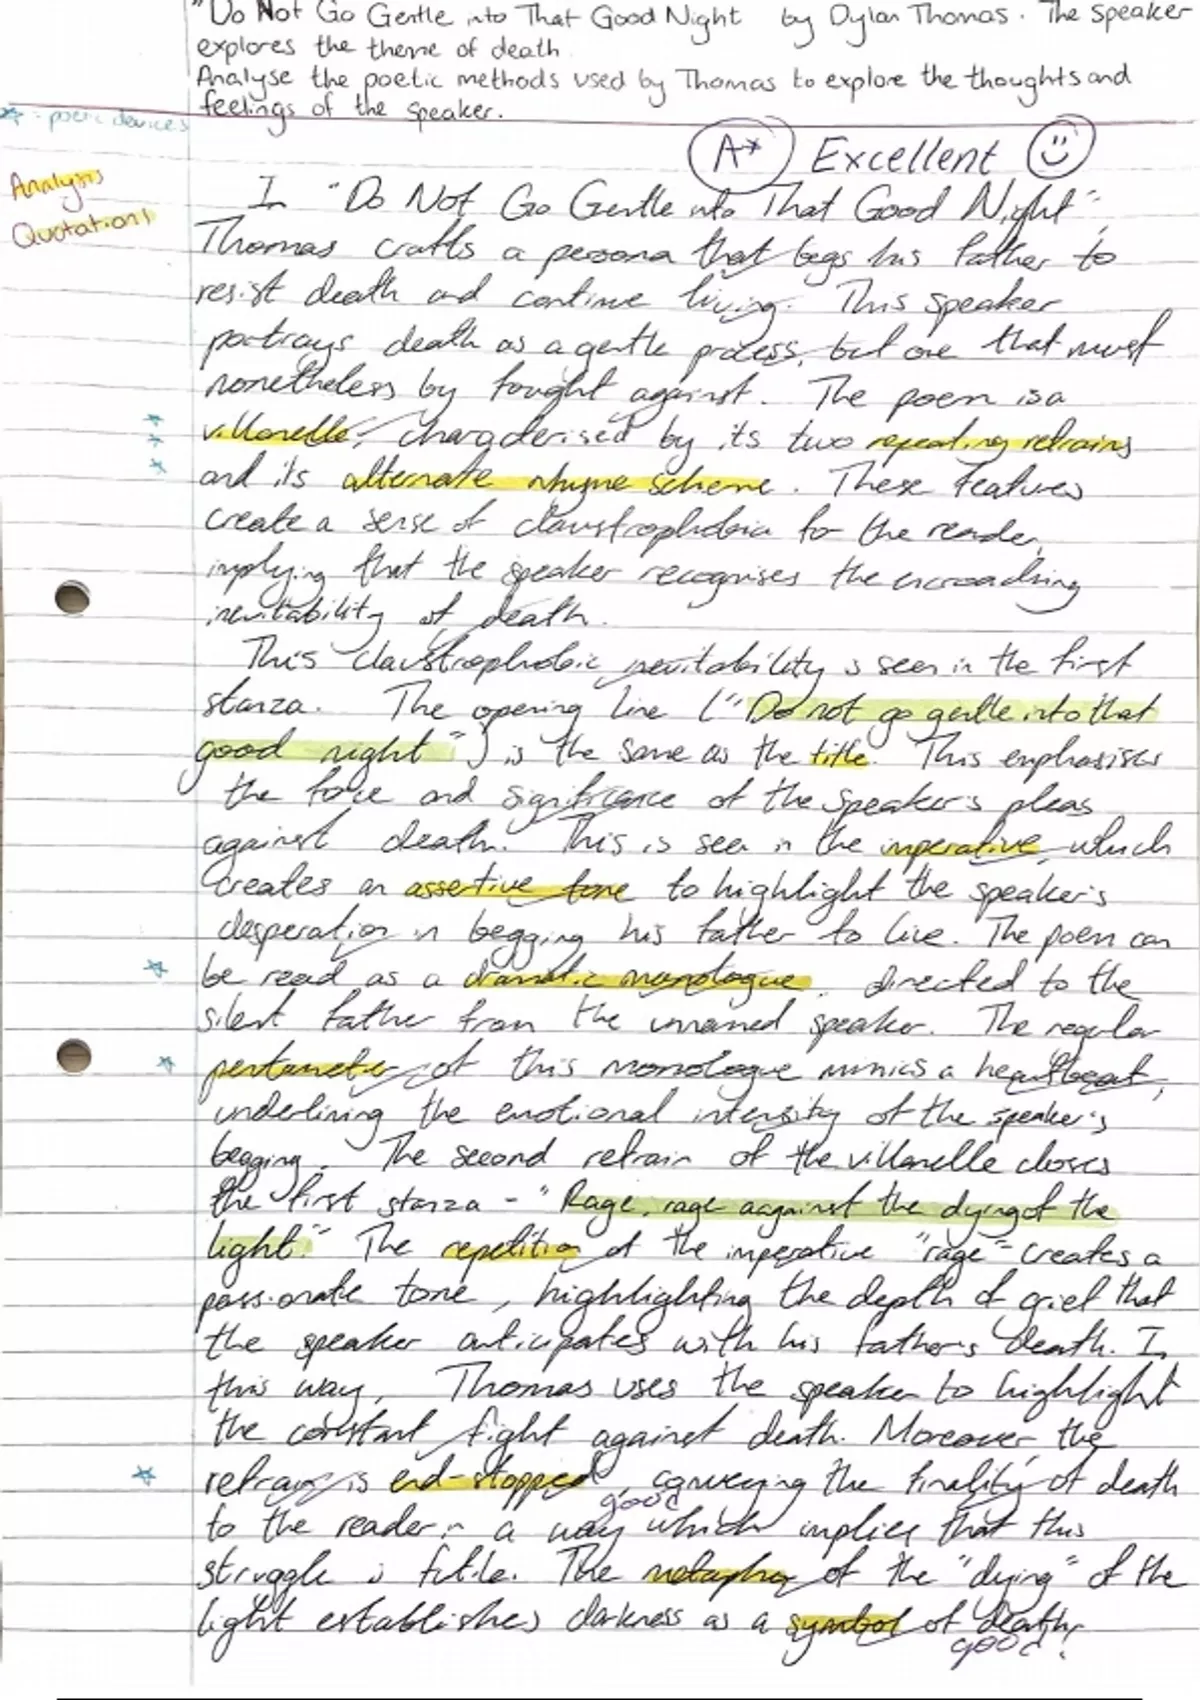 "Do Not Go Gentle into That Good Night by Dylan Thomas. The speaker
explores the theme of death
Analyse the poetic methods used by Thomas to explore the thoughts and
feelings of the speaker.
- poetic devices
A* Excellent
Analysis
Quotations
In "Do Not Go Gentle into That Good Night",
Thomas crafts a persona that begs his father to
resist death and continue living. This speaker
portrays death as a gentle process, but one that must
nonetheless by fought against. The poem is a
villanelle, characterised by its two repeating refrains
and its alternate rhyme scheme. These features
create a sense of claustrophobia for the reader,
implying that the speaker recognises the encroaching
inevitability of death.
This claustrophobic inevitability is seen in the first
stanza. The opening line ("Do not go gentle into that
good night") is the same as the title. This emphasises
the force and significance of the speaker's pleas
against death. This is seen in the imperative, which
creates an assertive tone to highlight the speaker's
desperation in begging his father to live. The poem can
be read as a dramatic monologue, directed to the
silent father from the unnamed speaker. The regular
pentameter of this monologue mimics a heartbeat,
underlining the emotional intensity of the speaker's
begging. The second refrain of the villanelle closes
the first stanza - "Rage, rage aagainst the dying of the
light." The repetition of the imperative "rage" creates a
passionate tone, highlighting the depth of grief that
the speaker anticipates with his father's death. In
this way, Thomas uses the speaker to highlight
the constant fight against death. Moreover the
refrain is end-stopped, conveying the finality of death
good
to the reader in a way which implies that this
struggle is futile. The metaphor of the "dying" of the
light establishes darkness as a symbol of death.
good!